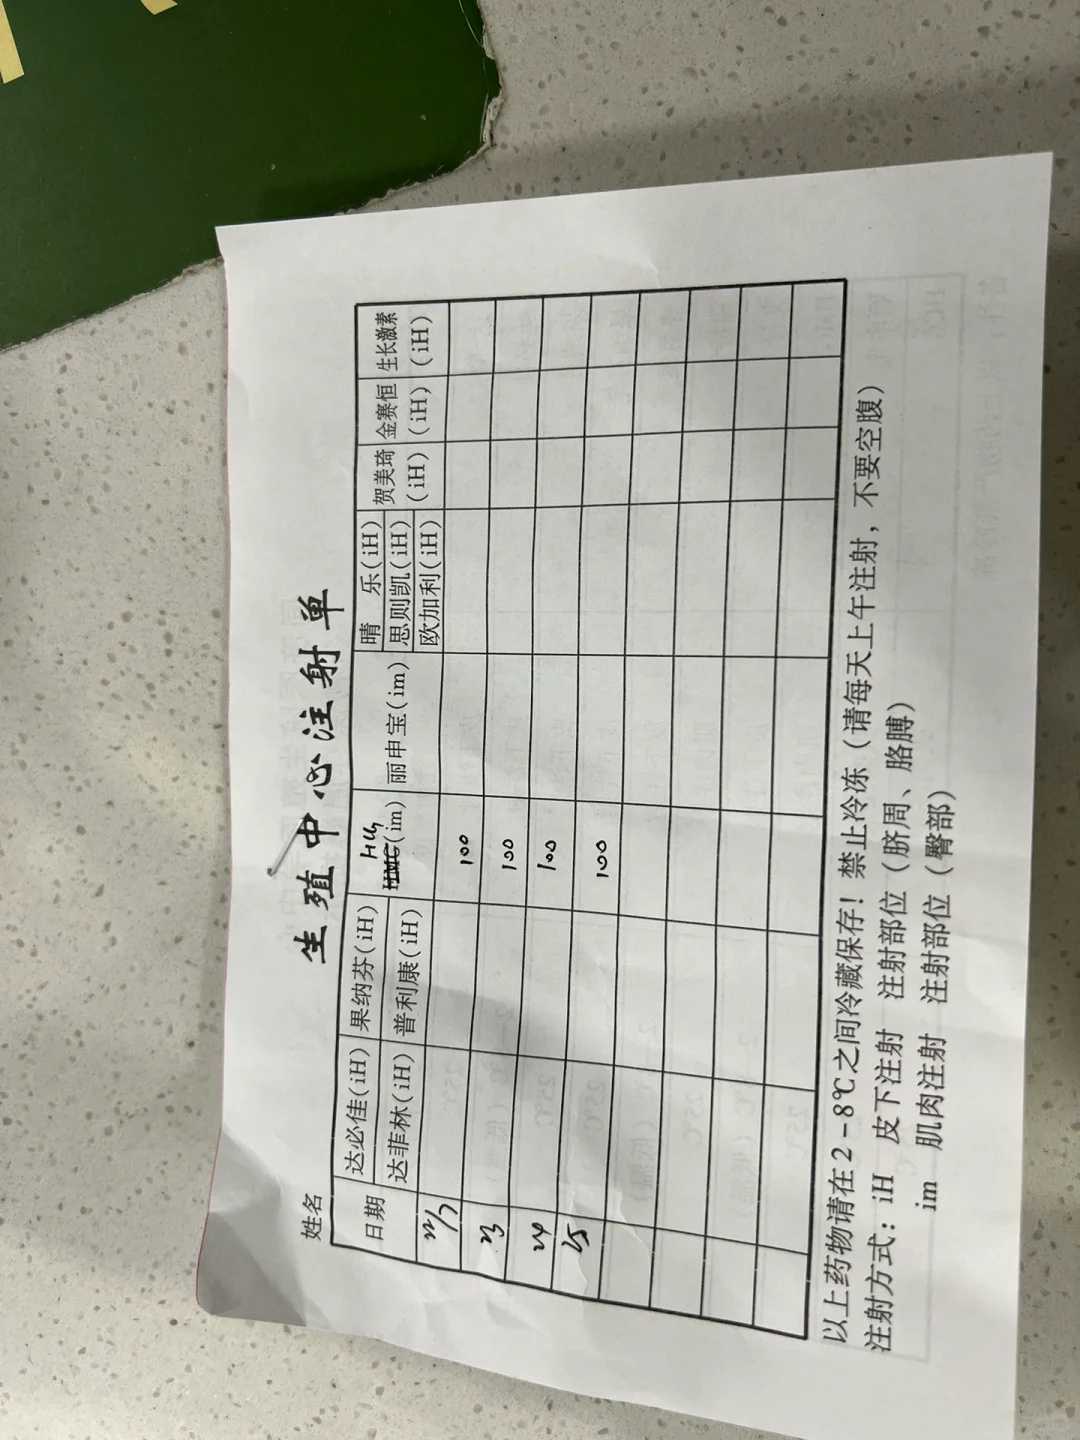 生殖中心注射单
姓名
日期 达必佳(iH) 果纳芬(iH) HCG (im) 丽申宝(im) 晴 乐(iH) 贺美琦(iH) 金赛恒(iH) 生长激素(iH)
达菲林(iH) 普利康(iH) 思则凯(iH)
欧加利(iH)
100
100
100
100
以上药物请在2-8℃之间冷藏保存！禁止冷冻（请每天上午注射，不要空腹）
注射方式：iH 皮下注射 注射部位（脐周、胳膊）
im 肌肉注射 注射部位（臀部）